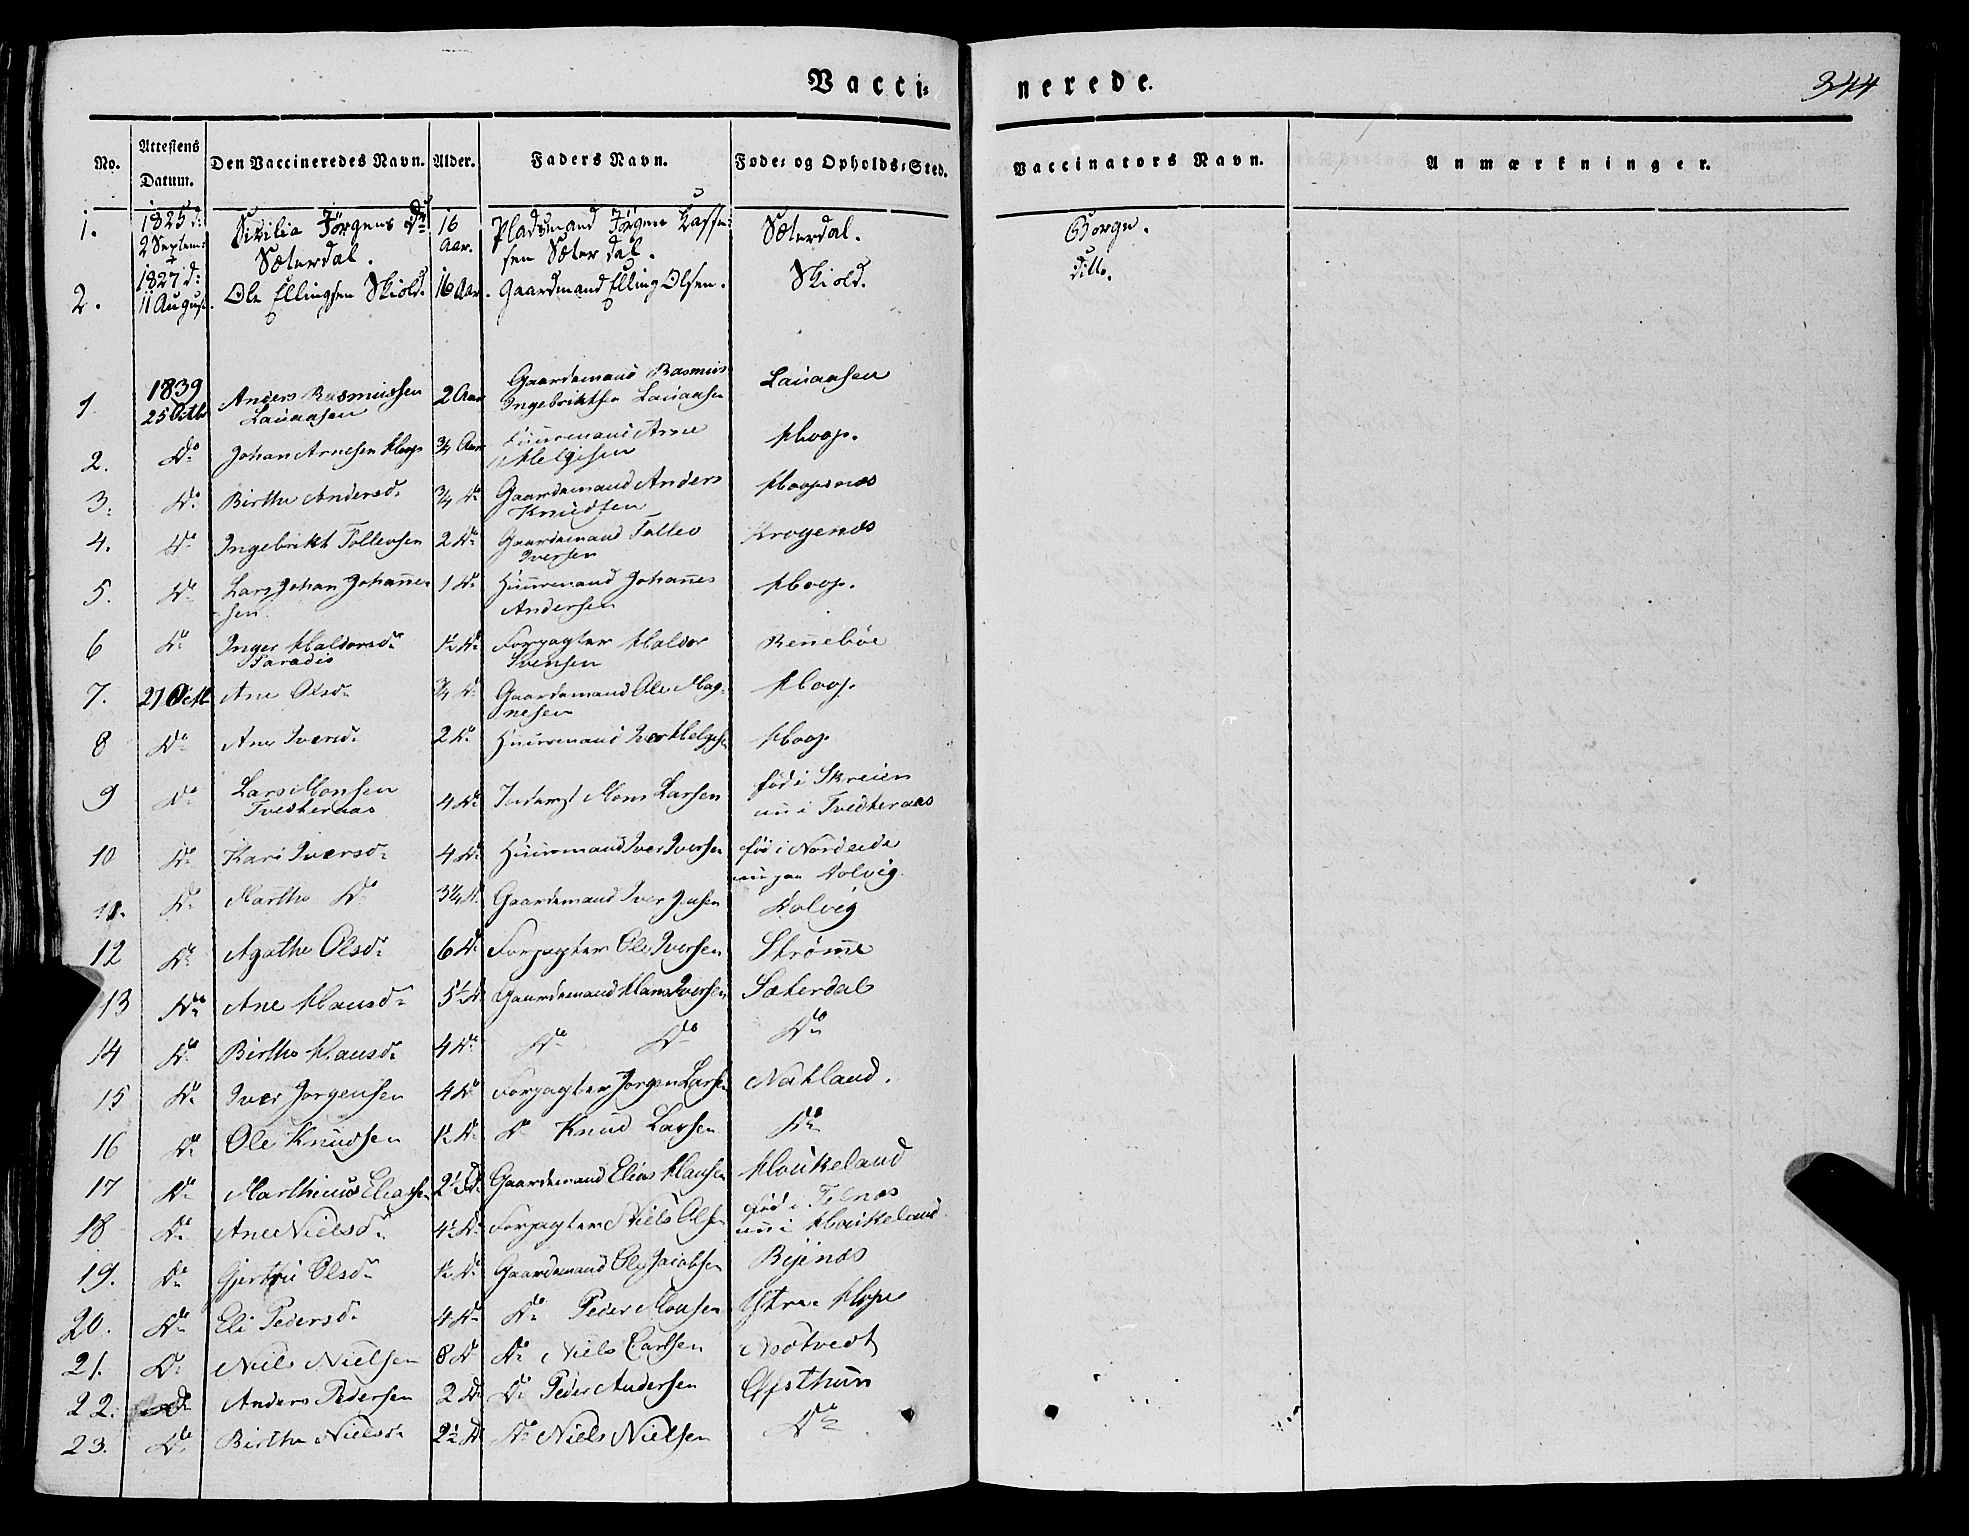 Vacci- nerede.
344
No. Attestens Datum. Den Vaccineredes Navn. Alder. Faders Navn. Føde- og Opholds-Sted. Vaccinators Navn. Anmærkninger.
1. 1825 d: 2 Septem: Sicilia Jörgens Dr Sæterdal. 16 Aar. Pladsmand Jörgen Lassesen Sæterdal. Sæterdal. Borge.
2. 1827 d: 11 August. Ole Ellingsen Skiold. 16 Aar. Gaardmand Elling Olsen. Skiold. ditto.
1 1839 25 Octbr Anders Rasmussen Lauaasen 2 Aar Gaardemand Rasmus Ingebriktsen Lauaasen Lauaasen
2. Do Johan Arnesen Hoop 3/4 Aar Huusmand Arne Helgesen Hoop.
3. Do Birthe Andersd. 3/4 Do Gaardemand Anders Knudsen Hoopsnæs
4. Do Ingebrikt Tollevsen 2 Do Gaardemand Tollev Iversen Krogenæs
5. Do Lars Johan Johannessen. 1 Do Huusmand Johannes Andersen Hoop.
6 Do Inger Haldorsd. Paradis 1½ Do Forpagter Haldor Svensen Rennebøe
7. 27 Octb Ane Olsd. 3/4 Do Gaardemand Ole Magnesen Hoop
8 Do Ane Iversd. 2 Do Huusmand Iver Helgesen Hoop
9 Do Lars Monsen Tvedteraas 4 Do Inderst Mons Larsen fød i Skreien nu i Tvedteraas
10 Do Kari Iversd. 4 Do Huusmand Iver Iversen fød i Nordeide nu paa Dolvig.
11. Do Marthe Do 3¼ Do Gaardemand Iver Jensen Dolvig
12 Do Agathe Olsd. 6 Do Forpagter Ole Iversen Strømme
13 Do Ane Hansd. 5½ Do Gaardemand Hans Iversen Sæterdal
14 Do Birthe Hansd. 4 Do Do Do Do
15 Do Iver Jorgensen 4 Do Forpagter Jorgen Larsen Natland.
16 Do Ole Knudsen 1½ Do Do Knud Larsen Do
17 Do Marthinus Eliassen 2½ Do Gaardemand Elias Hansen Houkeland
18 Do Ane Nielsd. 4½ Do Forpagter Niels Olsen fød i Titnæs nu i Houkeland.
19. Do Gjertrü Olsd. 1½ Do Gaardemand Ole Jacobsen Birjinæs
20. Do Eli Pedersd. 4 Do Do Peder Monsen Ytre Hope
21. Do Niels Nielsen 8 Do Do Niels Carlsen Nodtvedt
22. Do Anders Pedersen 2 Do Do Peder Andersen Apsthun
23. Do Birthe Nielsd. 2½ Do Do Niels Nielsen Do